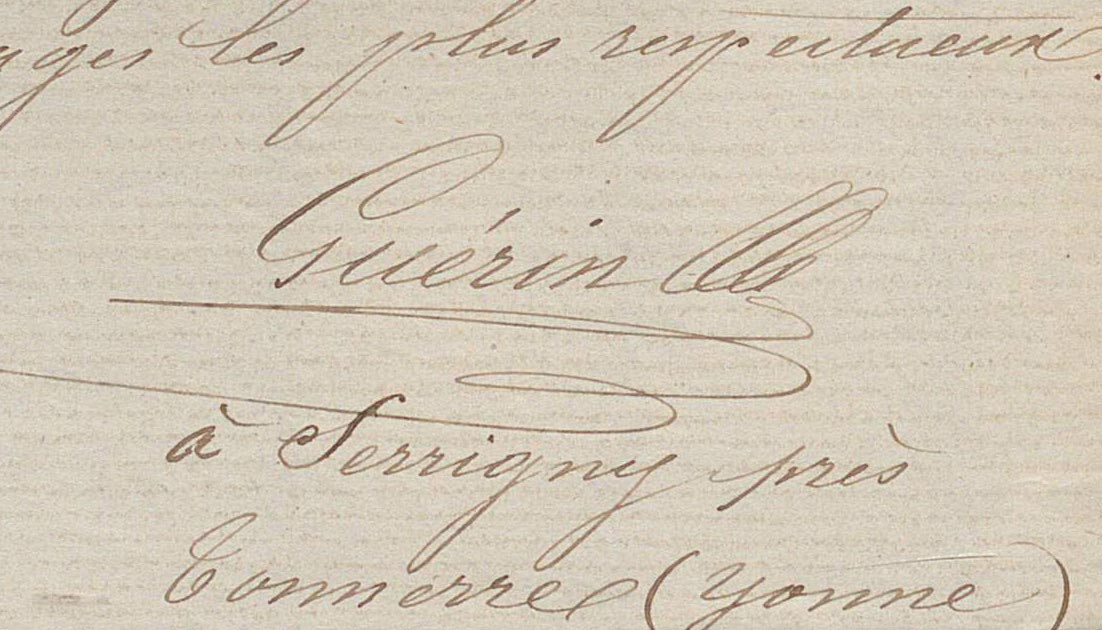 ages les plus respectueux.
Guérin
à Serrigny près
Tonnerre (Yonne)